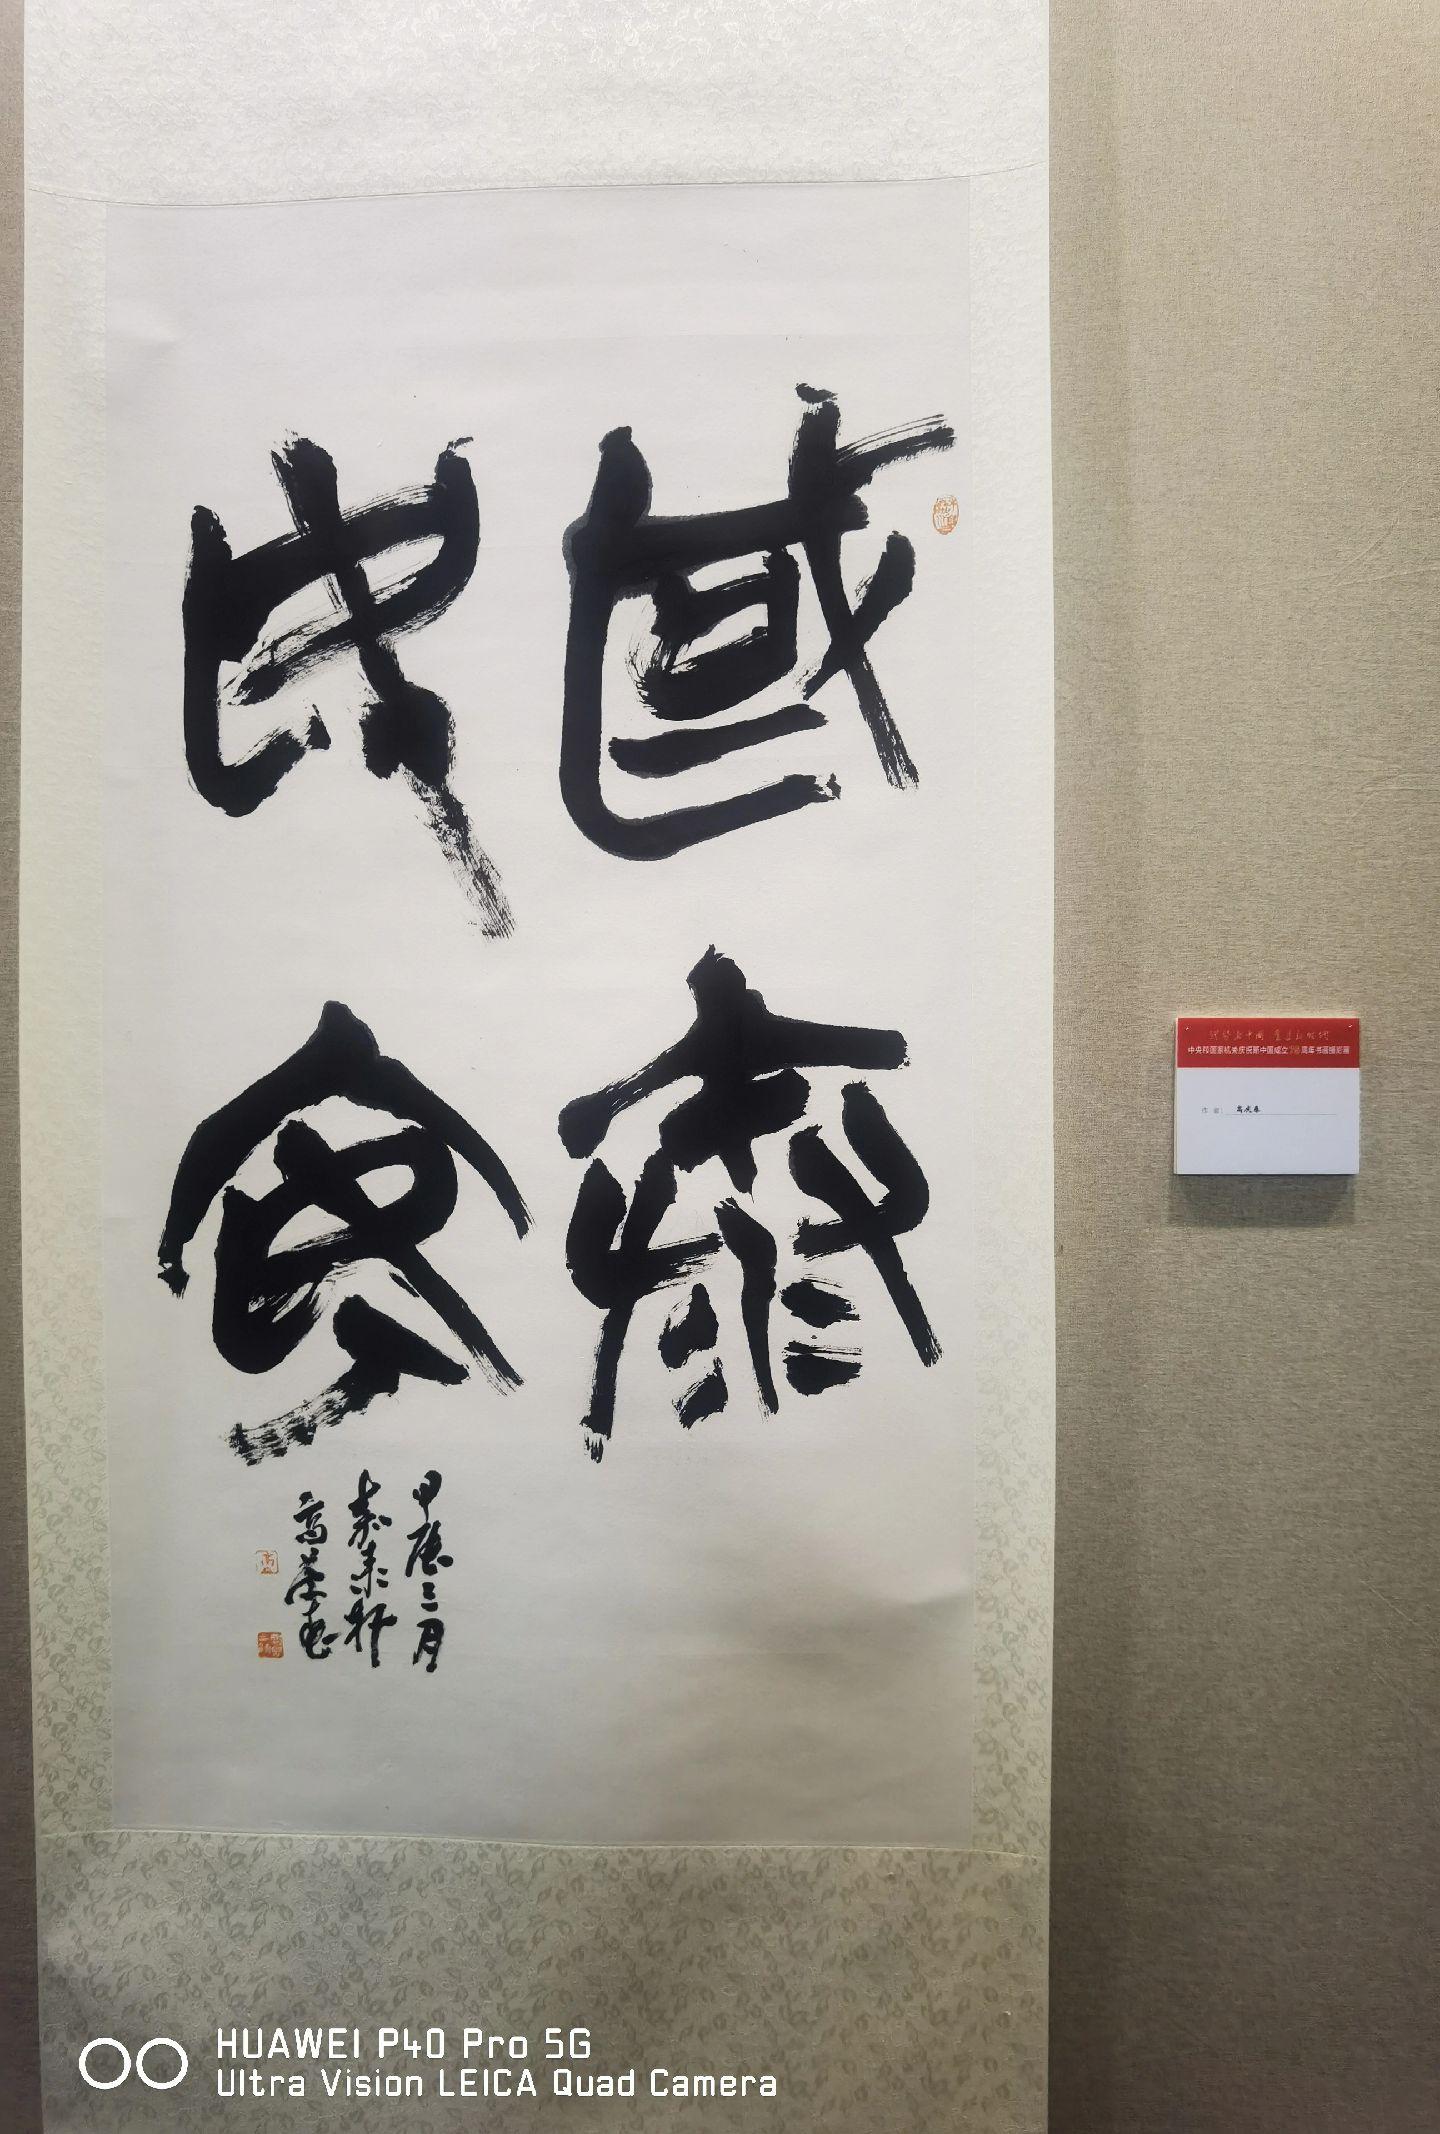 國泰
民安
甲辰三月
泰来轩
中央和国家机关庆祝新中国成立75周年书画摄影展
作者：
HUAWEI P40 Pro 5G
Ultra Vision LEICA Quad Camera